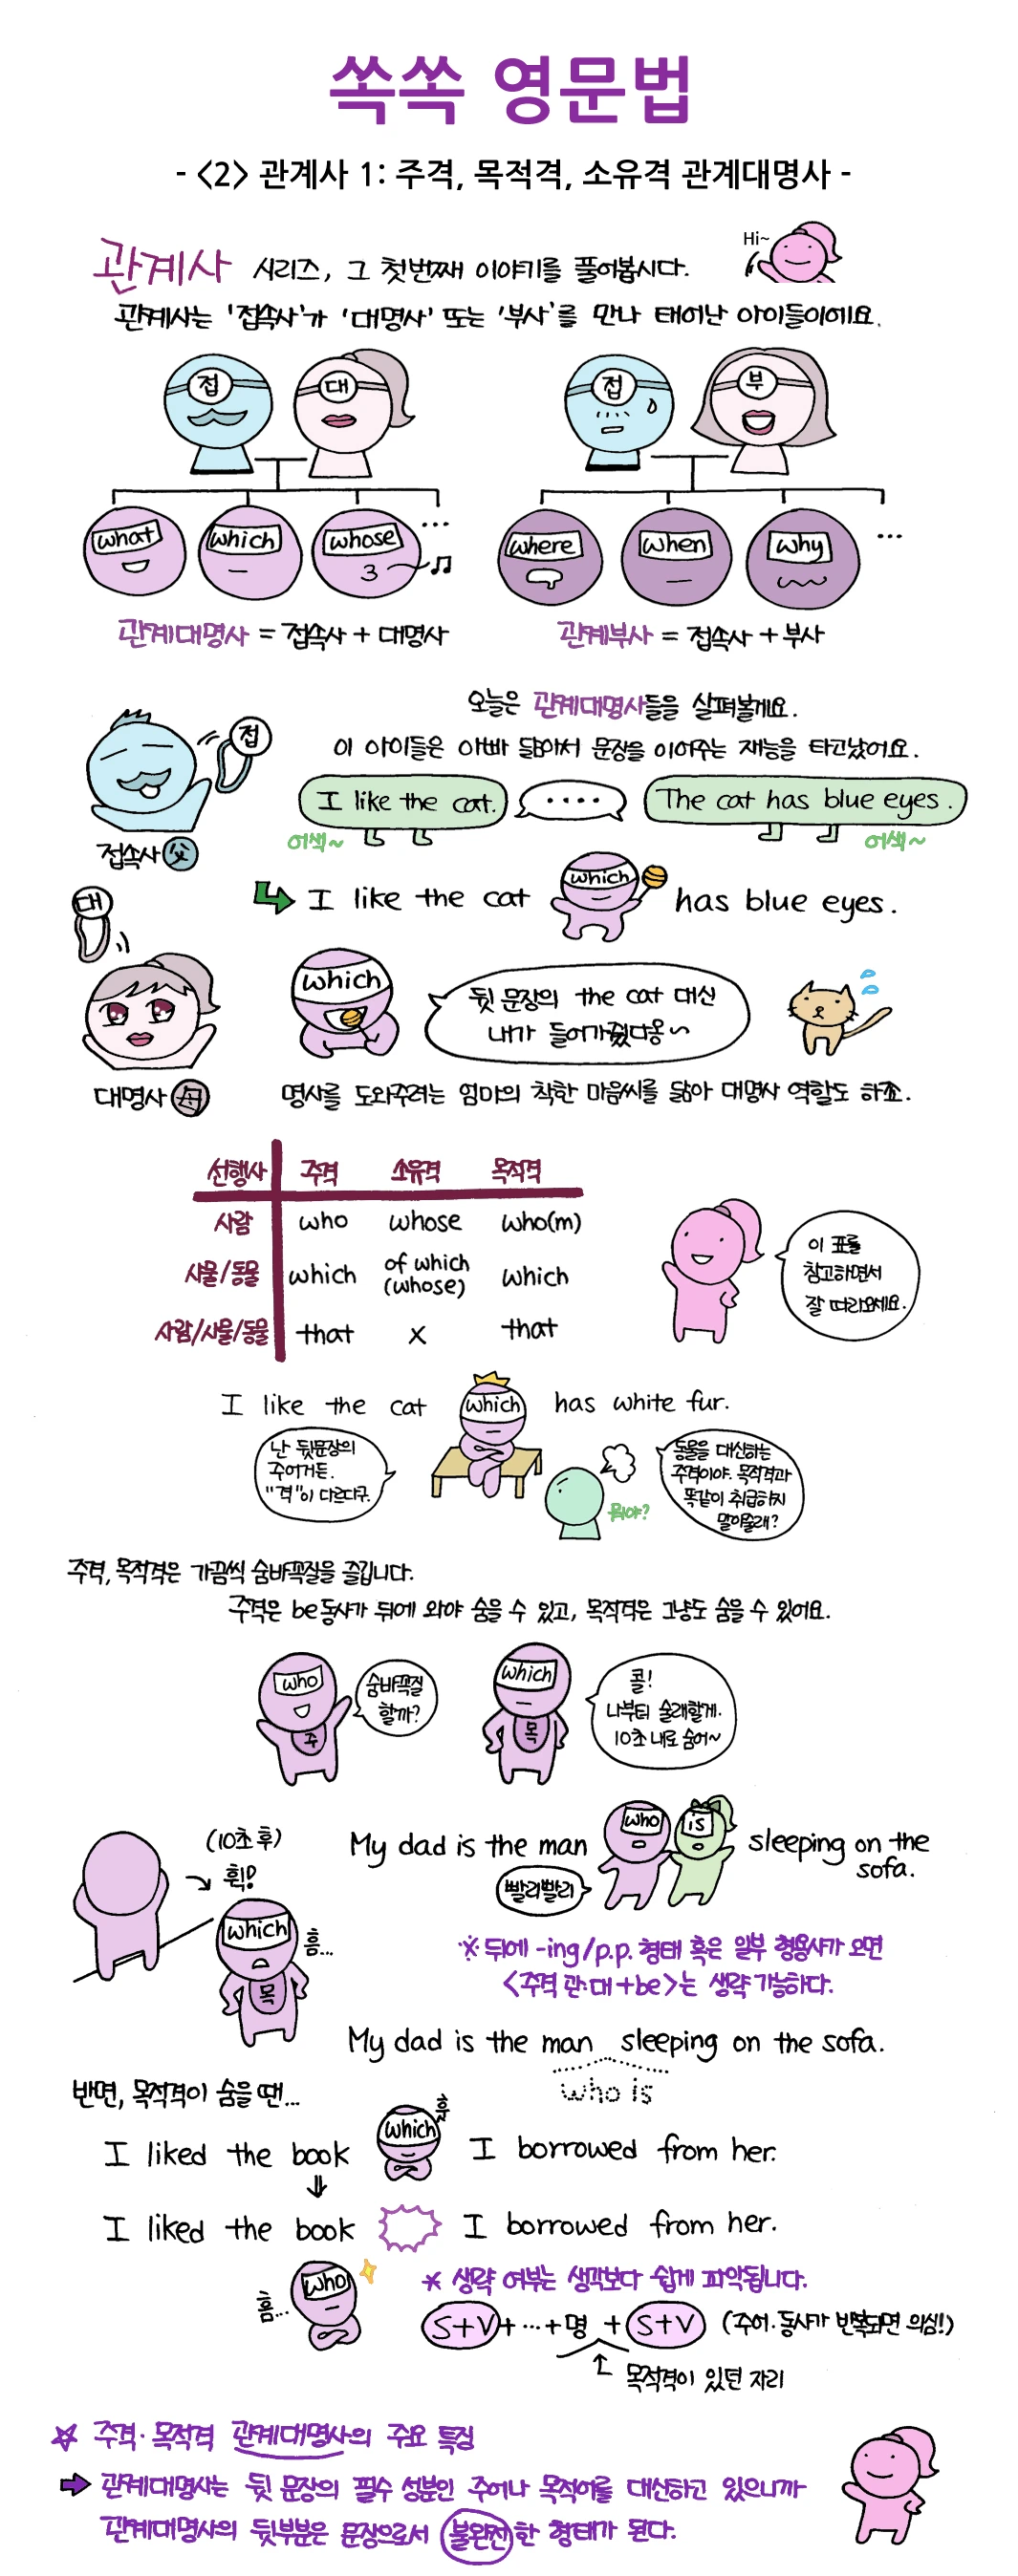 쏙쏙 영문법
- <2> 관계사 1: 주격, 목적격, 소유격 관계대명사 -
Hi~
관계사 시리즈, 그 첫번째 이야기를 풀어봅시다.
관계사는 '접속사'가 '대명사' 또는 '부사'를 만나 태어난 아이들이에요.
접 대 접 부
what which whose ... where when why ...
관계대명사 = 접속사 + 대명사
관계부사 = 접속사 + 부사
오늘은 관계대명사들을 살펴볼게요.
접
이 아이들은 아빠 닮아서 문장을 이어주는 재능을 타고났어요.
I like the cat. .... The cat has blue eyes.
어색~ 어색~
접속사 父
대
I like the cat which has blue eyes.
which
뒷 문장의 the cat 대신
내가 들어가줬다옹~
대명사 母
명사를 도와주려는 엄마의 착한 마음씨를 닮아 대명사 역할도 하죠.
선행사 주격 소유격 목적격
사람 who whose who(m)
사물/동물 which of which (whose) which
사람/사물/동물 that x that
이 표를
참고하면서
잘 따라오세요.
I like the cat which has white fur.
난 뒷문장의
주어거든.
"격"이 다르다구.
뭐야?
동물을 대신하는
주격이야. 목적격과
똑같이 취급하지
말아줄래?
주격, 목적격은 가끔씩 숨바꼭질을 즐깁니다.
주격은 be동사가 뒤에 와야 숨을 수 있고, 목적격은 그냥도 숨을 수 있어요.
who
주
숨바꼭질
할까?
which
목
콜!
나부터 술래할게.
10초 내로 숨어~
(10초 후)
휙!
which
목
흠...
My dad is the man who is sleeping on the
sofa.
빨리빨리
※ 뒤에 -ing/p.p. 형태 혹은 일부 형용사가 오면
<주격 관·대 + be>는 생략 가능하다.
My dad is the man sleeping on the sofa.
who is
반면, 목적격이 숨을 땐...
I liked the book which I borrowed from her.
훗
⇓
I liked the book I borrowed from her.
who
흠...
* 생략 여부는 생각보다 쉽게 파악됩니다.
S+V + ... + 명 + S+V (주어·동사가 반복되면 의심!)
↑ 목적격이 있던 자리
☆ 주격·목적격 관계대명사의 주요 특징
➡ 관계대명사는 뒷 문장의 필수 성분인 주어나 목적어를 대신하고 있으니까
관계대명사의 뒷부분은 문장으로서 불완전한 형태가 된다.